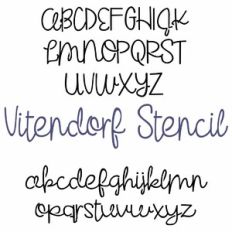 ABCDEFGHIJK
LMNOPQRST
UVWXYZ
Vitendorf Stencil
abcdefghijklmn
opqrstuvwxyz